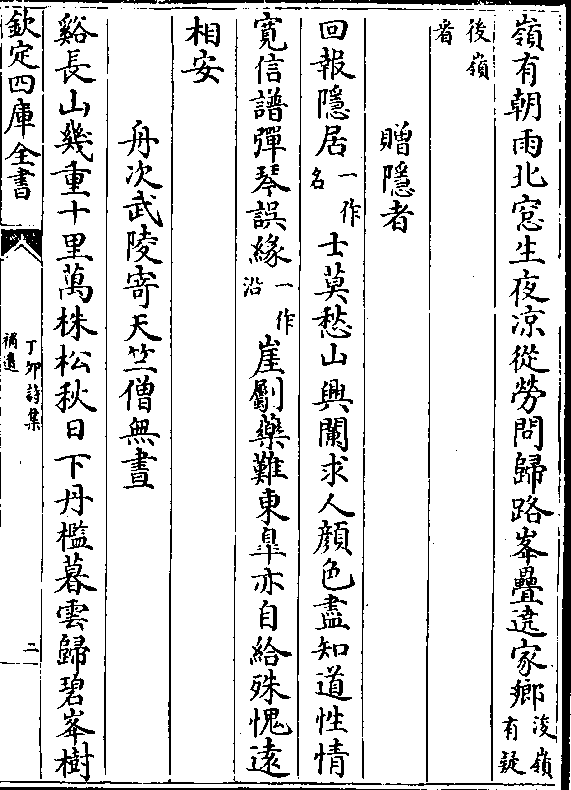 嶺有朝雨北窓生夜凉從勞問歸路峯疊遶家鄉浚嶺有疑
後嶺者
贈隱者
回報隱居一作名士莫愁山興闌求人顔色盡知道性情
寛信譜彈琴誤緣一作沿崖劚藥難東臯亦自給殊愧遠
相安
舟次武陵寄天竺僧無晝
谿長山幾重十里萬株松秋日下丹檻暮雲歸碧峯樹
欽定四庫全書
丁卯詩集
補遺
二